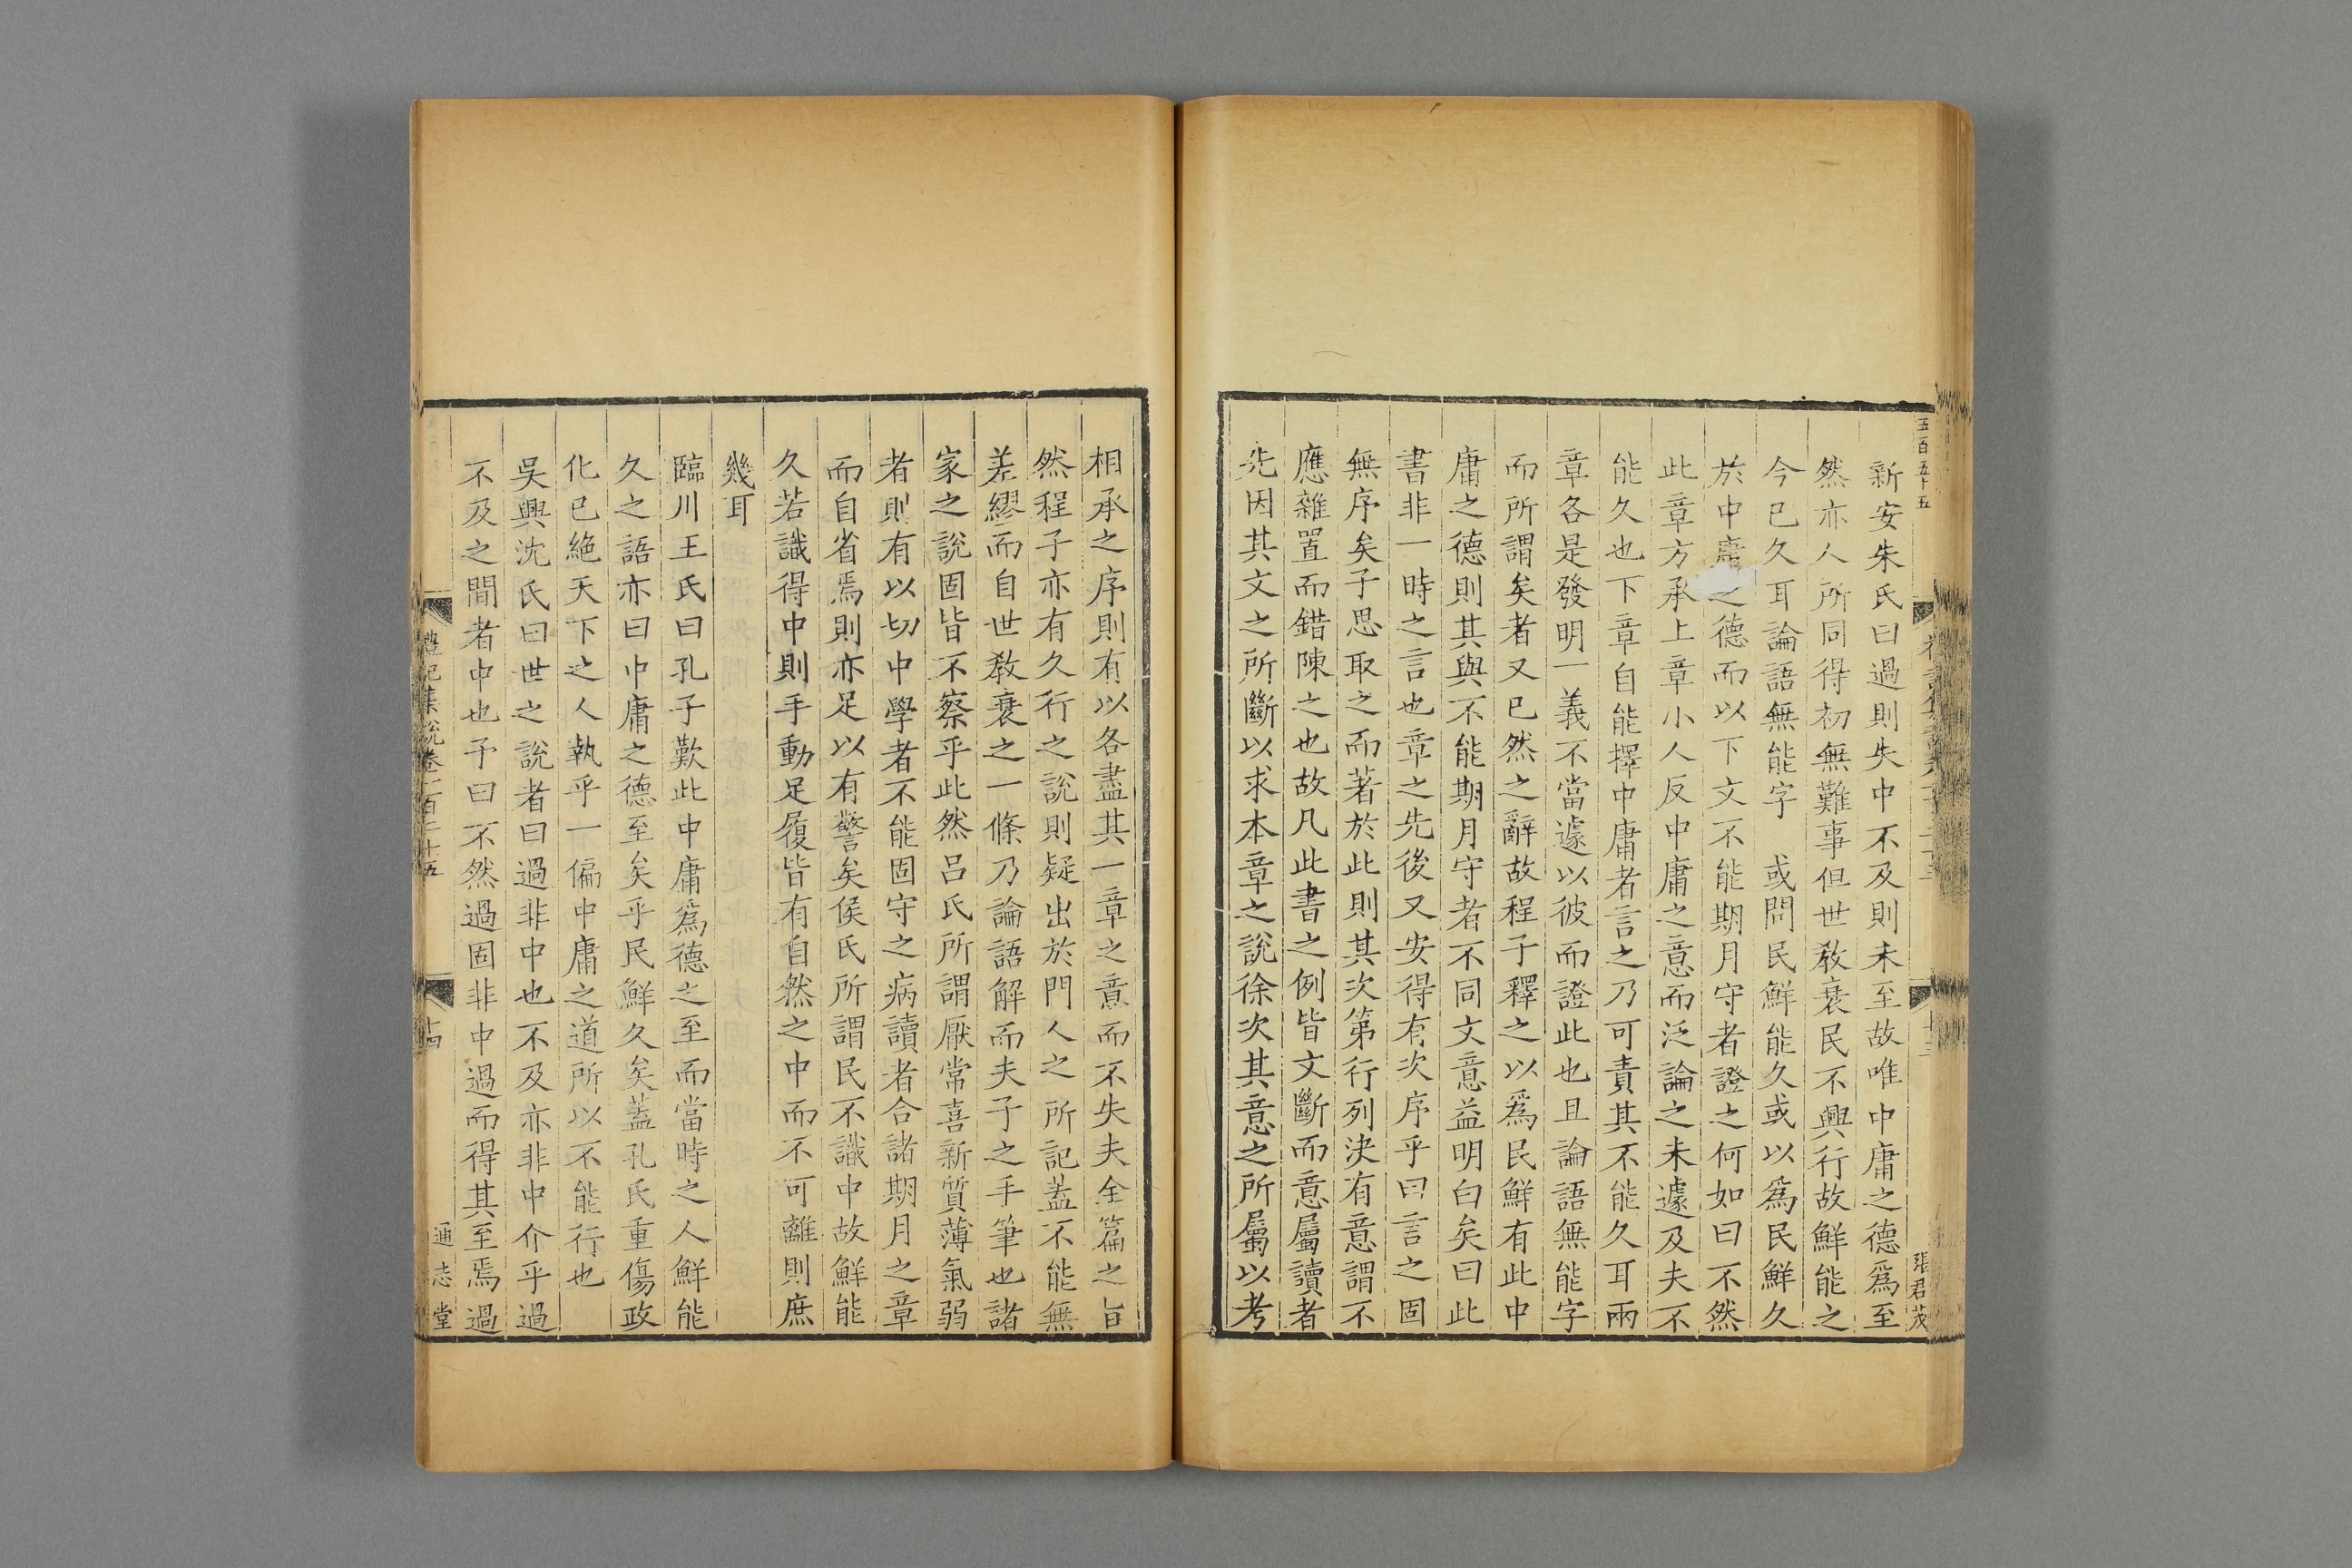 五百五十五
張君茂
新安朱氏曰過則失中不及則未至故唯中庸之德爲至
然亦人所同得初無難事但世敎衰民不興行故鮮能之
今已久耳論語無能字 或問民鮮能久或以爲民鮮久
於中庸之德而以下文不能期月守者證之何如曰不然
此章方承上章小人反中庸之意而泛論之未遽及夫不
能久也下章自能擇中庸者言之乃可責其不能久耳兩
章各是發明一義不當遽以彼而證此也且論語無能字
而所謂矣者又已然之辭故程子釋之以爲民鮮有此中
庸之德則其與不能期月守者不同文意益明白矣曰此
書非一時之言也章之先後又安得有次序乎曰言之固
無序矣子思取之而著於此則其次第行列決有意謂不
應雜置而錯陳之也故凡此書之例皆文斷而意屬讀者
先因其文之所斷以求本章之說徐次其意之所屬以考
相承之序則有以各盡其一章之意而不失夫全篇之旨
然程子亦有久行之說則疑出於門人之所記蓋不能無
差繆而自世敎衰之一條乃論語解而夫子之手筆也諸
家之說固皆不察乎此然呂氏所謂厭常喜新質薄氣弱
者則有以切中學者不能固守之病讀者合諸期月之章
而自省焉則亦足以有警矣侯氏所謂民不識中故鮮能
久若識得中則手動足履皆有自然之中而不可離則庶
幾耳
臨川王氏曰孔子歎此中庸爲德之至而當時之人鮮能
久之語亦曰中庸之德至矣乎民鮮久矣蓋孔氏重傷政
化已絶天下之人執乎一偏中庸之道所以不能行也
吳興沈氏曰世之說者曰過非中也不及亦非中介乎過
不及之間者中也予曰不然過固非中過而得其至焉過
禮記集說卷一百二十五
十四
通志堂